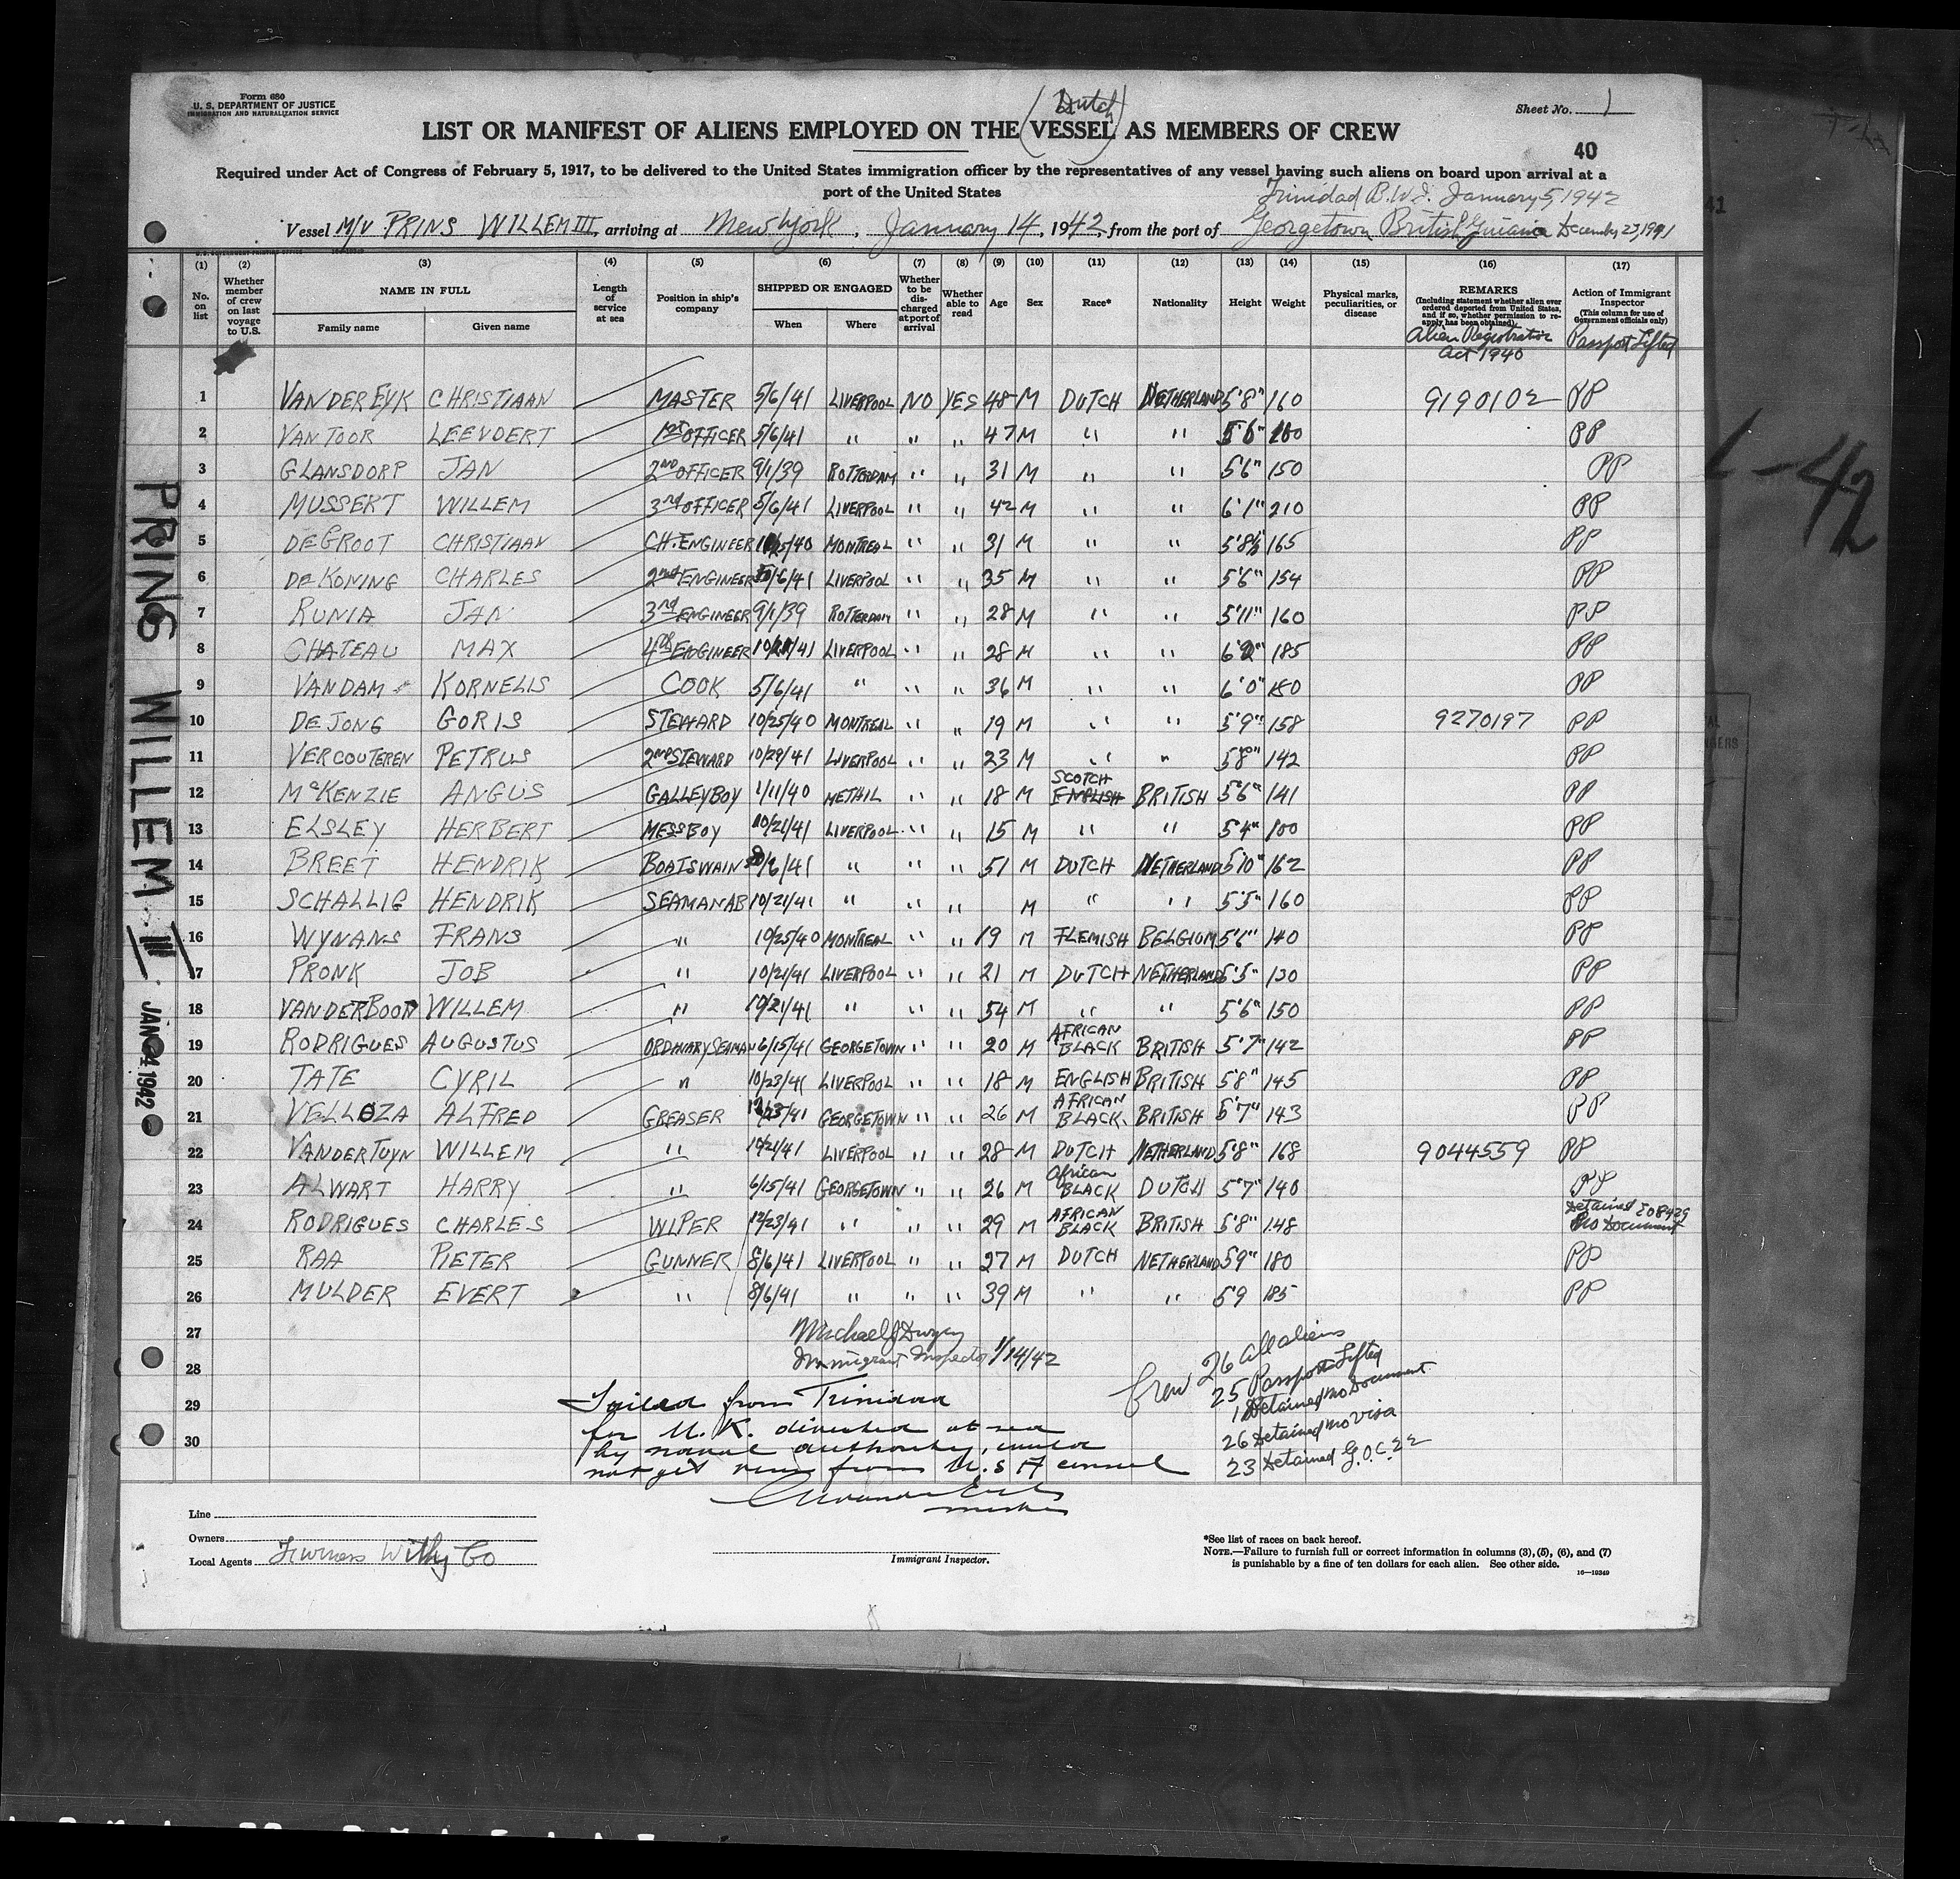 Form 680
U. S. DEPARTMENT OF JUSTICE
IMMIGRATION AND NATURALIZATION SERVICE
Sheet No. 1
(Dutch)
LIST OR MANIFEST OF ALIENS EMPLOYED ON THE VESSEL AS MEMBERS OF CREW
40
Required under Act of Congress of February 5, 1917, to be delivered to the United States immigration officer by the representatives of any vessel having such aliens on board upon arrival at a
port of the United States
Trinidad B.W.I. January 5, 1942
Vessel M/V PRINS WILLEM III, arriving at New York, January 14, 1942, from the port of Georgetown British Guiana December 23, 1941
(1) (2) (3) (4) (5) (6) (7) (8) (9) (10) (11) (12) (13) (14) (15) (16) (17)
No. on list
Whether member of crew on last voyage to U.S.
NAME IN FULL
Family name Given name
Length of service at sea
Position in ship's company
SHIPPED OR ENGAGED
When Where
Whether to be discharged at port of arrival
Whether able to read
Age Sex Race* Nationality Height Weight
Physical marks, peculiarities, or disease
REMARKS
(Including statement whether alien ever ordered deported from United States, and if so, whether permission to reapply has been obtained)
Alien Registration Act 1940
Action of Immigrant Inspector
(This column for use of Government officials only)
Passport Lifted
1 VANDER EYK CHRISTIAAN MASTER 5/6/41 LIVERPOOL NO YES 48 M DUTCH NETHERLAND 5'8" 160 9190102 PP
2 VAN TOOR LEENDERT 1st OFFICER 5/6/41 " " " 47 M " " 5'6" 160 PP
3 GLANSDORP JAN 2ND OFFICER 9/1/39 ROTTERDAM " " 31 M " " 5'6" 150 PP
4 MUSSERT WILLEM 3rd OFFICER 5/6/41 LIVERPOOL " " 42 M " " 6'1" 210 PP
5 DE GROOT CHRISTIAAN CH. ENGINEER 10/25/40 MONTREAL " " 31 M " " 5'8½ 165 PP
6 DE KONING CHARLES 2nd ENGINEER /6/41 LIVERPOOL " " 35 M " " 5'6" 154 PP
7 RUNIA JAN 3rd ENGINEER 9/1/39 ROTTERDAM " " 28 M " " 5'11" 160 PP
8 CHATEAU MAX 4th ENGINEER 10/21/41 LIVERPOOL " " 28 M " " 6'2" 185 PP
9 VAN DAM KORNELIS COOK 5/6/41 " " " 36 M " " 6'0" 180 PP
10 DE JONG GORIS STEWARD 10/25/40 MONTREAL " " 19 M " " 5'9" 158 9270197 PP
11 VERCOUTEREN PETRUS 2ND STEWARD 10/29/41 LIVERPOOL " " 23 M " " 5'8" 142 PP
12 McKENZIE ANGUS GALLEY BOY 1/11/40 METHIL " " 18 M SCOTCH ENGLISH BRITISH 5'6" 141 PP
13 ELSLEY HERBERT MESSBOY 10/21/41 LIVERPOOL " " 15 M " " 5'4" 100 PP
14 BREET HENDRIK BOATSWAIN /6/41 " " " 51 M DUTCH NETHERLAND 5'10" 162 PP
15 SCHALLIG HENDRIK SEAMAN AB 10/21/41 " " " M " " 5'5" 160 PP
16 WYNANS FRANS " 10/25/40 MONTREAL " " 19 M FLEMISH BELGIUM 5'6" 140 PP
17 PRONK JOB " 10/21/41 LIVERPOOL " " 21 M DUTCH NETHERLAND 5'5" 130 PP
18 VANDERBOON WILLEM " 10/21/41 " " " 54 M " " 5'6" 150 PP
19 RODRIGUES AUGUSTUS ORDINARY SEAMAN 6/15/41 GEORGETOWN " " 20 M AFRICAN BLACK BRITISH 5'7" 142 PP
20 TATE CYRIL " 10/23/41 LIVERPOOL " " 18 M ENGLISH BRITISH 5'8" 145 PP
21 VELLOZA ALFRED GREASER 12/23/41 GEORGETOWN " " 26 M AFRICAN BLACK BRITISH 5'7" 143 PP
22 VANDERTUYN WILLEM " 10/21/41 LIVERPOOL " " 28 M DUTCH NETHERLAND 5'8" 168 9044559 PP
23 ALWART HARRY " 6/15/41 GEORGETOWN " " 26 M African BLACK DUTCH 5'7" 140 PP
24 RODRIGUES CHARLES WIPER 12/23/41 " " " 29 M AFRICAN BLACK BRITISH 5'8" 148 Detained No Document
25 RAA PIETER GUNNER 8/6/41 LIVERPOOL " " 27 M DUTCH NETHERLAND 5'9" 180 PP
26 MULDER EVERT " 8/6/41 " " " 39 M " " 5'9 185 PP
27
28
29
30
Michael J Dwyer
Immigrant Inspector 1/14/42
Crew 26 all aliens
25 Passports Lifted
1 Detained no Document
26 Detained no visa
23 Detained G.O.C. 22
Sailed from Trinidad
for U.K. directed at sea
by naval authority, could
not get visa from U.S A consul
Master
Line
Owners
Local Agents Furness Withy Co
Immigrant Inspector.
*See list of races on back hereof.
NOTE.—Failure to furnish full or correct information in columns (3), (5), (6), and (7)
is punishable by a fine of ten dollars for each alien. See other side.
16—19349
PRINS WILLEM III
JAN 14 1942
41
-42